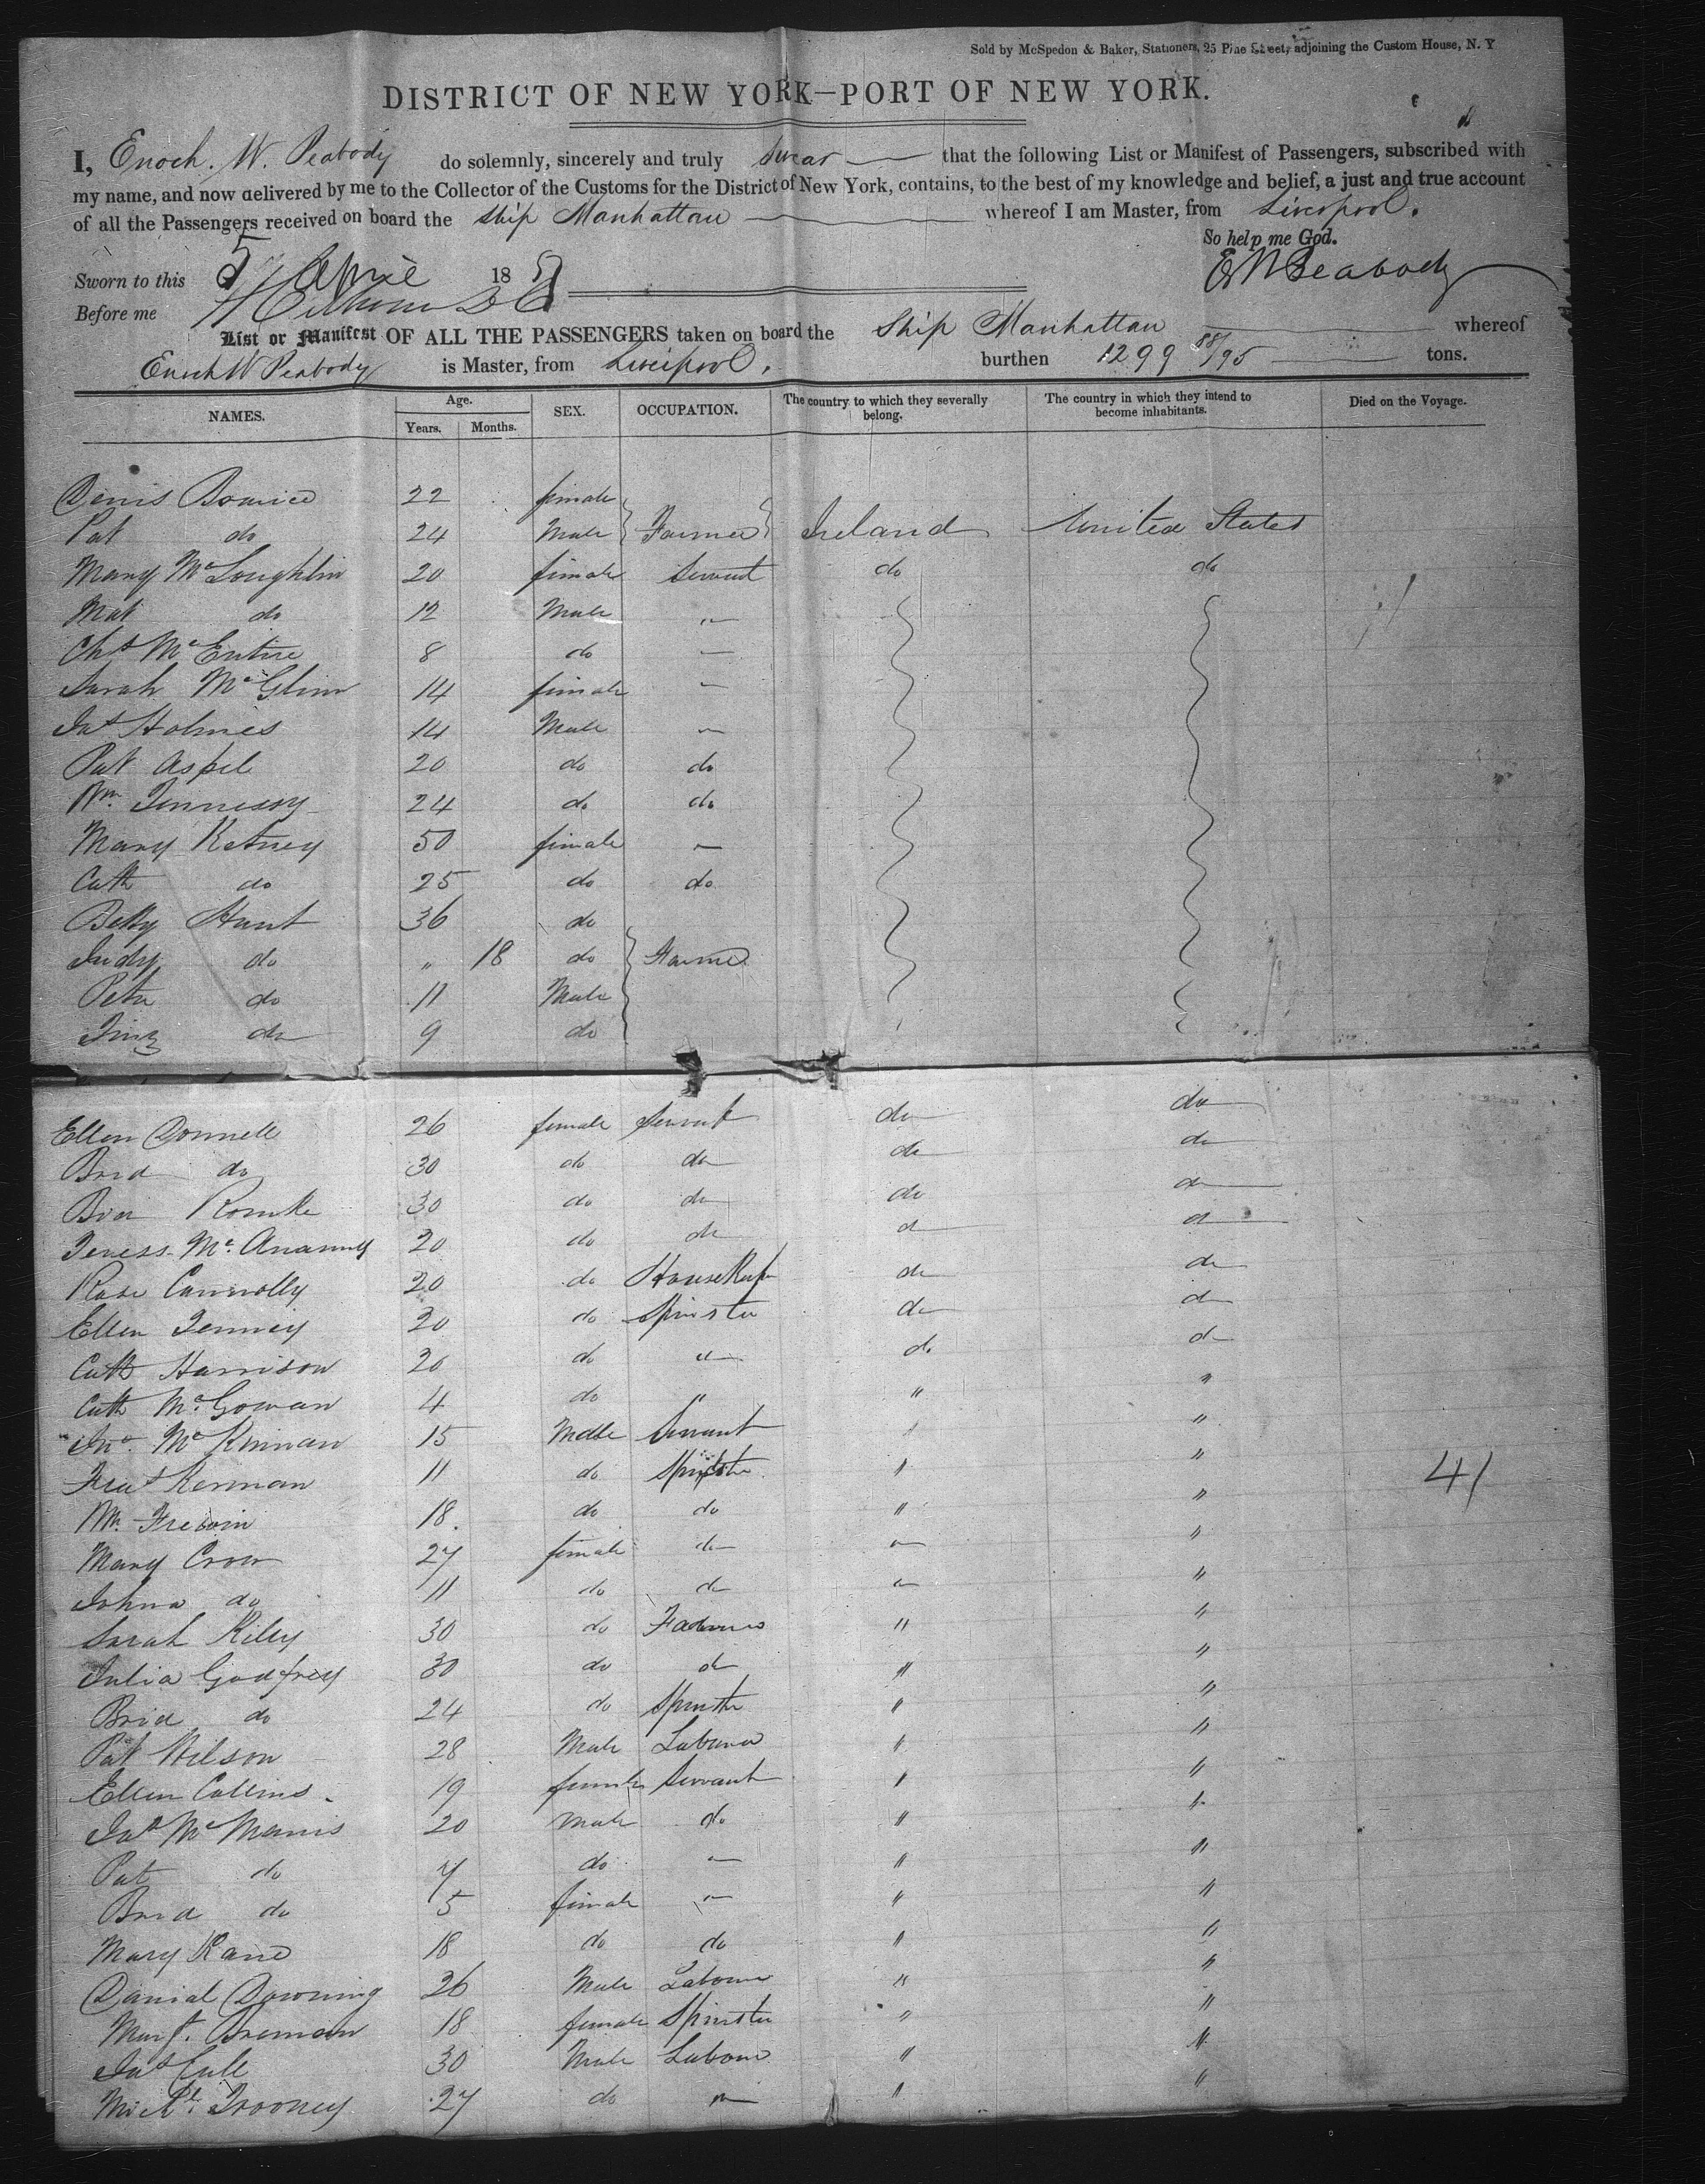 Sold by McSpedon & Baker, Stationers, 25 Pine Street, adjoining the Custom House, N. Y
DISTRICT OF NEW YORK—PORT OF NEW YORK.
I, Enoch. W. Peabody do solemnly, sincerely and truly swear that the following List or Manifest of Passengers, subscribed with
my name, and now delivered by me to the Collector of the Customs for the District of New York, contains, to the best of my knowledge and belief, a just and true account
of all the Passengers received on board the Ship Manhattan whereof I am Master, from Liverpool.
So help me God.
Sworn to this 5 April 18 EW Peabody
Before me
List or Manifest OF ALL THE PASSENGERS taken on board the Ship Manhattan whereof
Enoch W Peabody is Master, from Liverpool. burthen 1299 88/95 tons.
NAMES. Age. Years. Months. SEX. OCCUPATION. The country to which they severally belong. The country in which they intend to become inhabitants. Died on the Voyage.
Denis 22 female
Pat do 24 Male Farmer Ireland United States
Mary McLoughlin 20 female Servant do do
Mat do 12 Male "
Chs McEntire 8 do "
Sarah McGlinn 14 female "
Jas Holmes 14 Male "
Pat Aspel 20 do do
Wm. 24 do do
Mary 50 female "
Cath do 25 do do
Betty Hunt 36 do
Judy do " 18 do Farmer
Peter do 11 Male
do 9 do
Ellen Donnell 26 female Servant do do
Brid do 30 do do do do
30 do do do do
Teress Mc. 20 do do do do
Rose Connolly 20 do do do
Ellen 20 do Spinster do do
Cath Harrison 20 do " do do
Cath McGowan 4 do " " "
Jno. McKinnan 15 Male Servant " "
Kernan 11 do Spinster " " 41
Wm. 18. do do " "
Mary Crow 27 female do " "
do 11 do do " "
Sarah Riley 30 do " "
Julia Godfrey 30 do do " "
Brid do 24 do Spinster " "
Pat Wilson 28 Male Labourer " "
Ellen Collins. 19 female Servant " "
Jas McManis 20 Male do " "
Pat do 7 do " " "
Brid do 5 female " " "
Mary Kane 18 do do " "
Danial Downing 26 Male Labourer " "
Margt. 18 female Spinster " "
Jas 30 Male Labourer " "
Michl. 27 do " " "